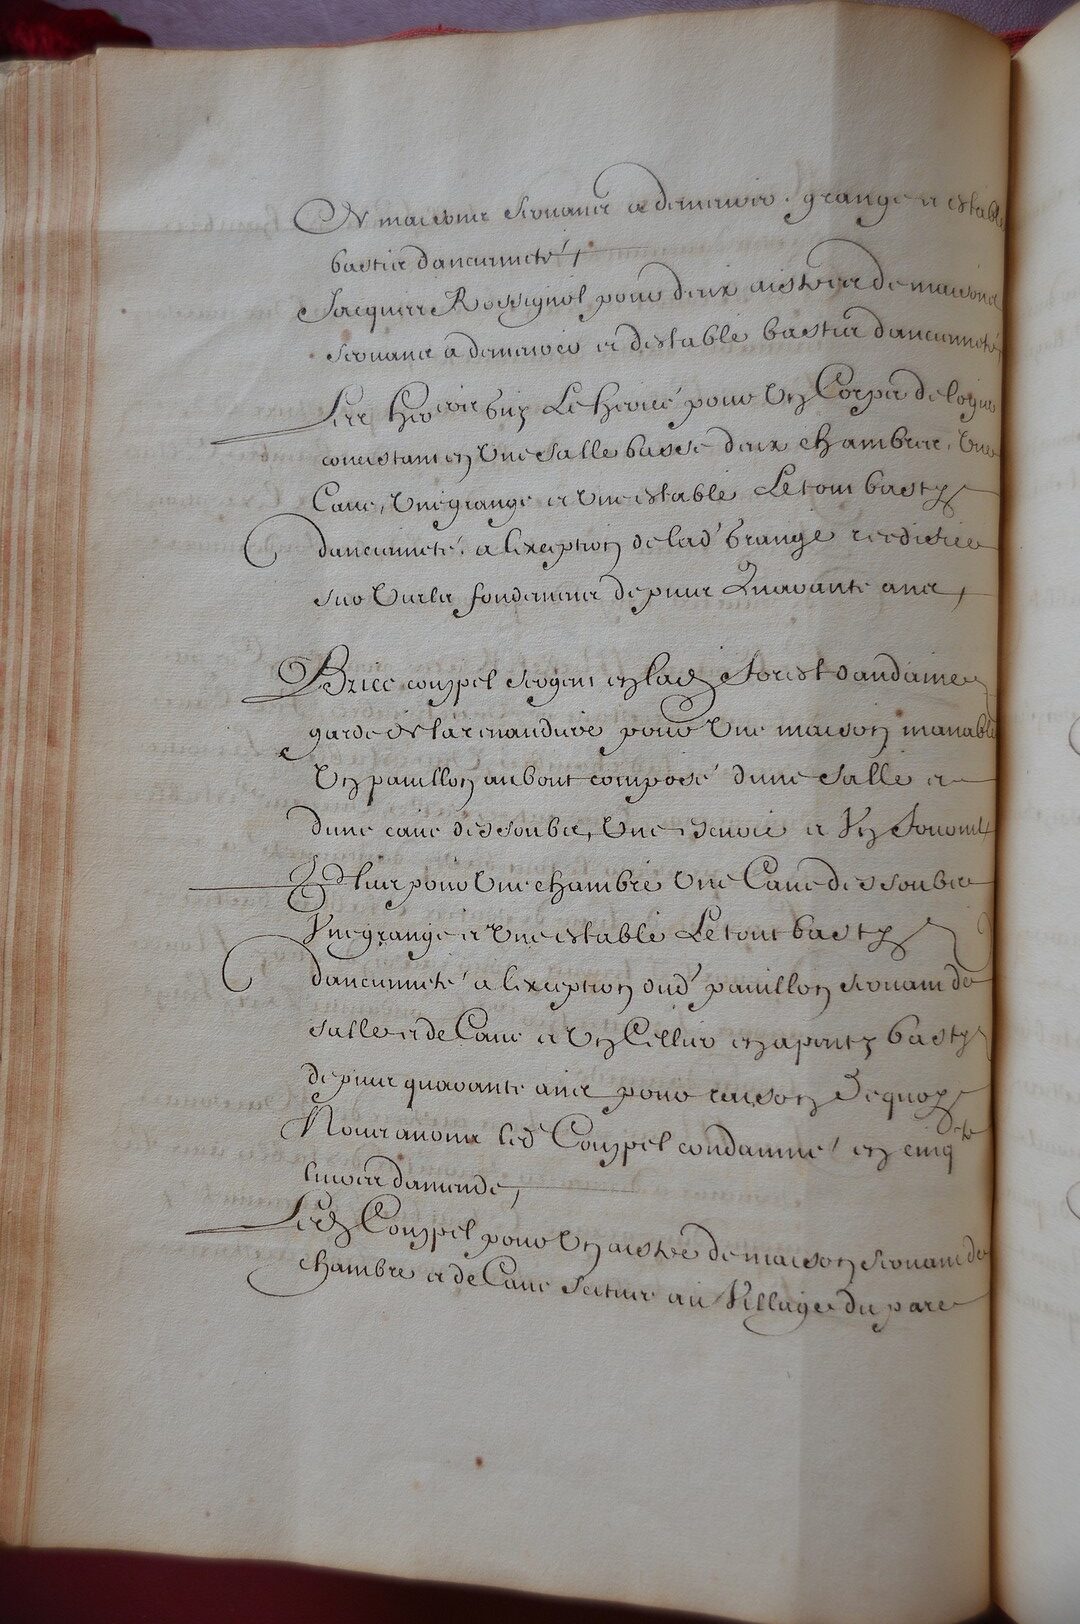 En maisons servants a demeurer, grange et estable
basties danciennete,
Jacques Rossignol pour deux aistres de maisons
servants a demeurer et destable basties danciennete,
Les her̃s Le herice pour Un Corps de logis
consistant en Une salle basse deux chambres, Une
Cave, Une grange et Une estable Le tout basty
dancienneté, a lexception de lad̃ Grange reediffiee
sur Vieils fondemens depuis Quarante ans,
Brice couppel sergent en lad̃ Forest dandaine
garde pour Une maison manable
Un pavillon au bout composé dune salle et
dune cave dessoubs, Une et Un
Plus pour Une chambre Une Cave dessoubs
Une grange et Une estable Le tout basty
dancienneté a lexception dud̃ pavillon servant de
salle et de Cave et Un Cellier en apenty basty
depuis quarante ans pour raison Dequoy
Nous avons led̃ Couppel condamné en cinq
livres damende,
Led̃ Couppel pour Un aistre de maison servant de
chambre et de Cave scitue au Village du parc